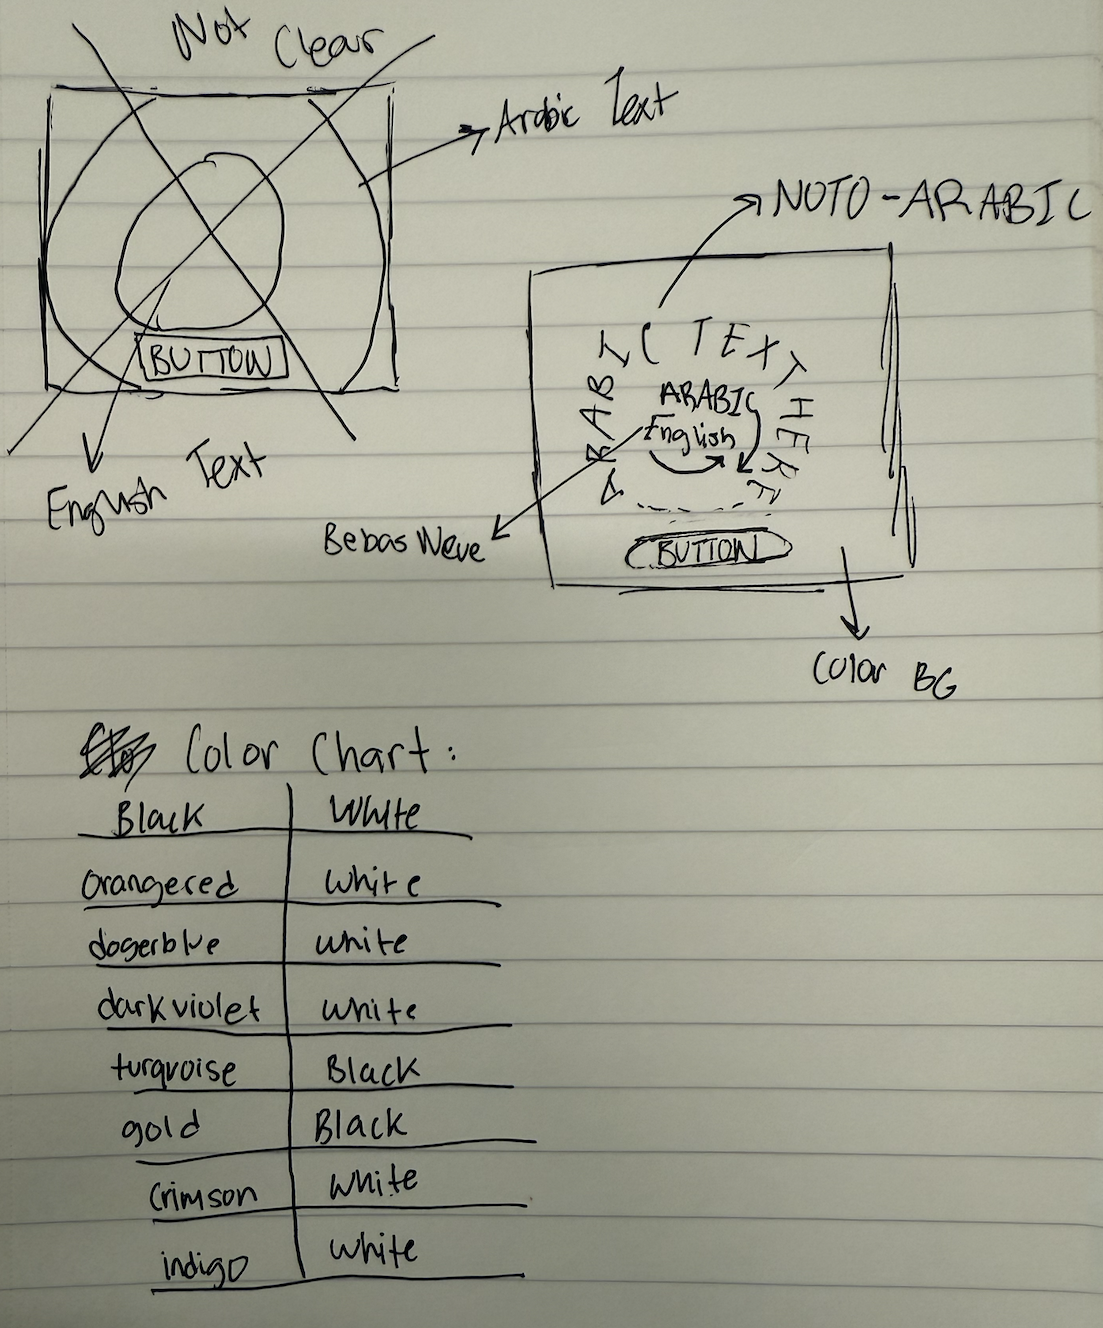 Not Clear
Arabic Text
BUTTON
English Text
NOTO-ARABIC
ARABIC TEXT HERE
ARABIC
English
Bebas Neue
BUTTON
Color BG
Color Chart:
Black White
orangered white
dogerblue white
darkviolet white
turquoise Black
gold Black
Crimson White
indigo White